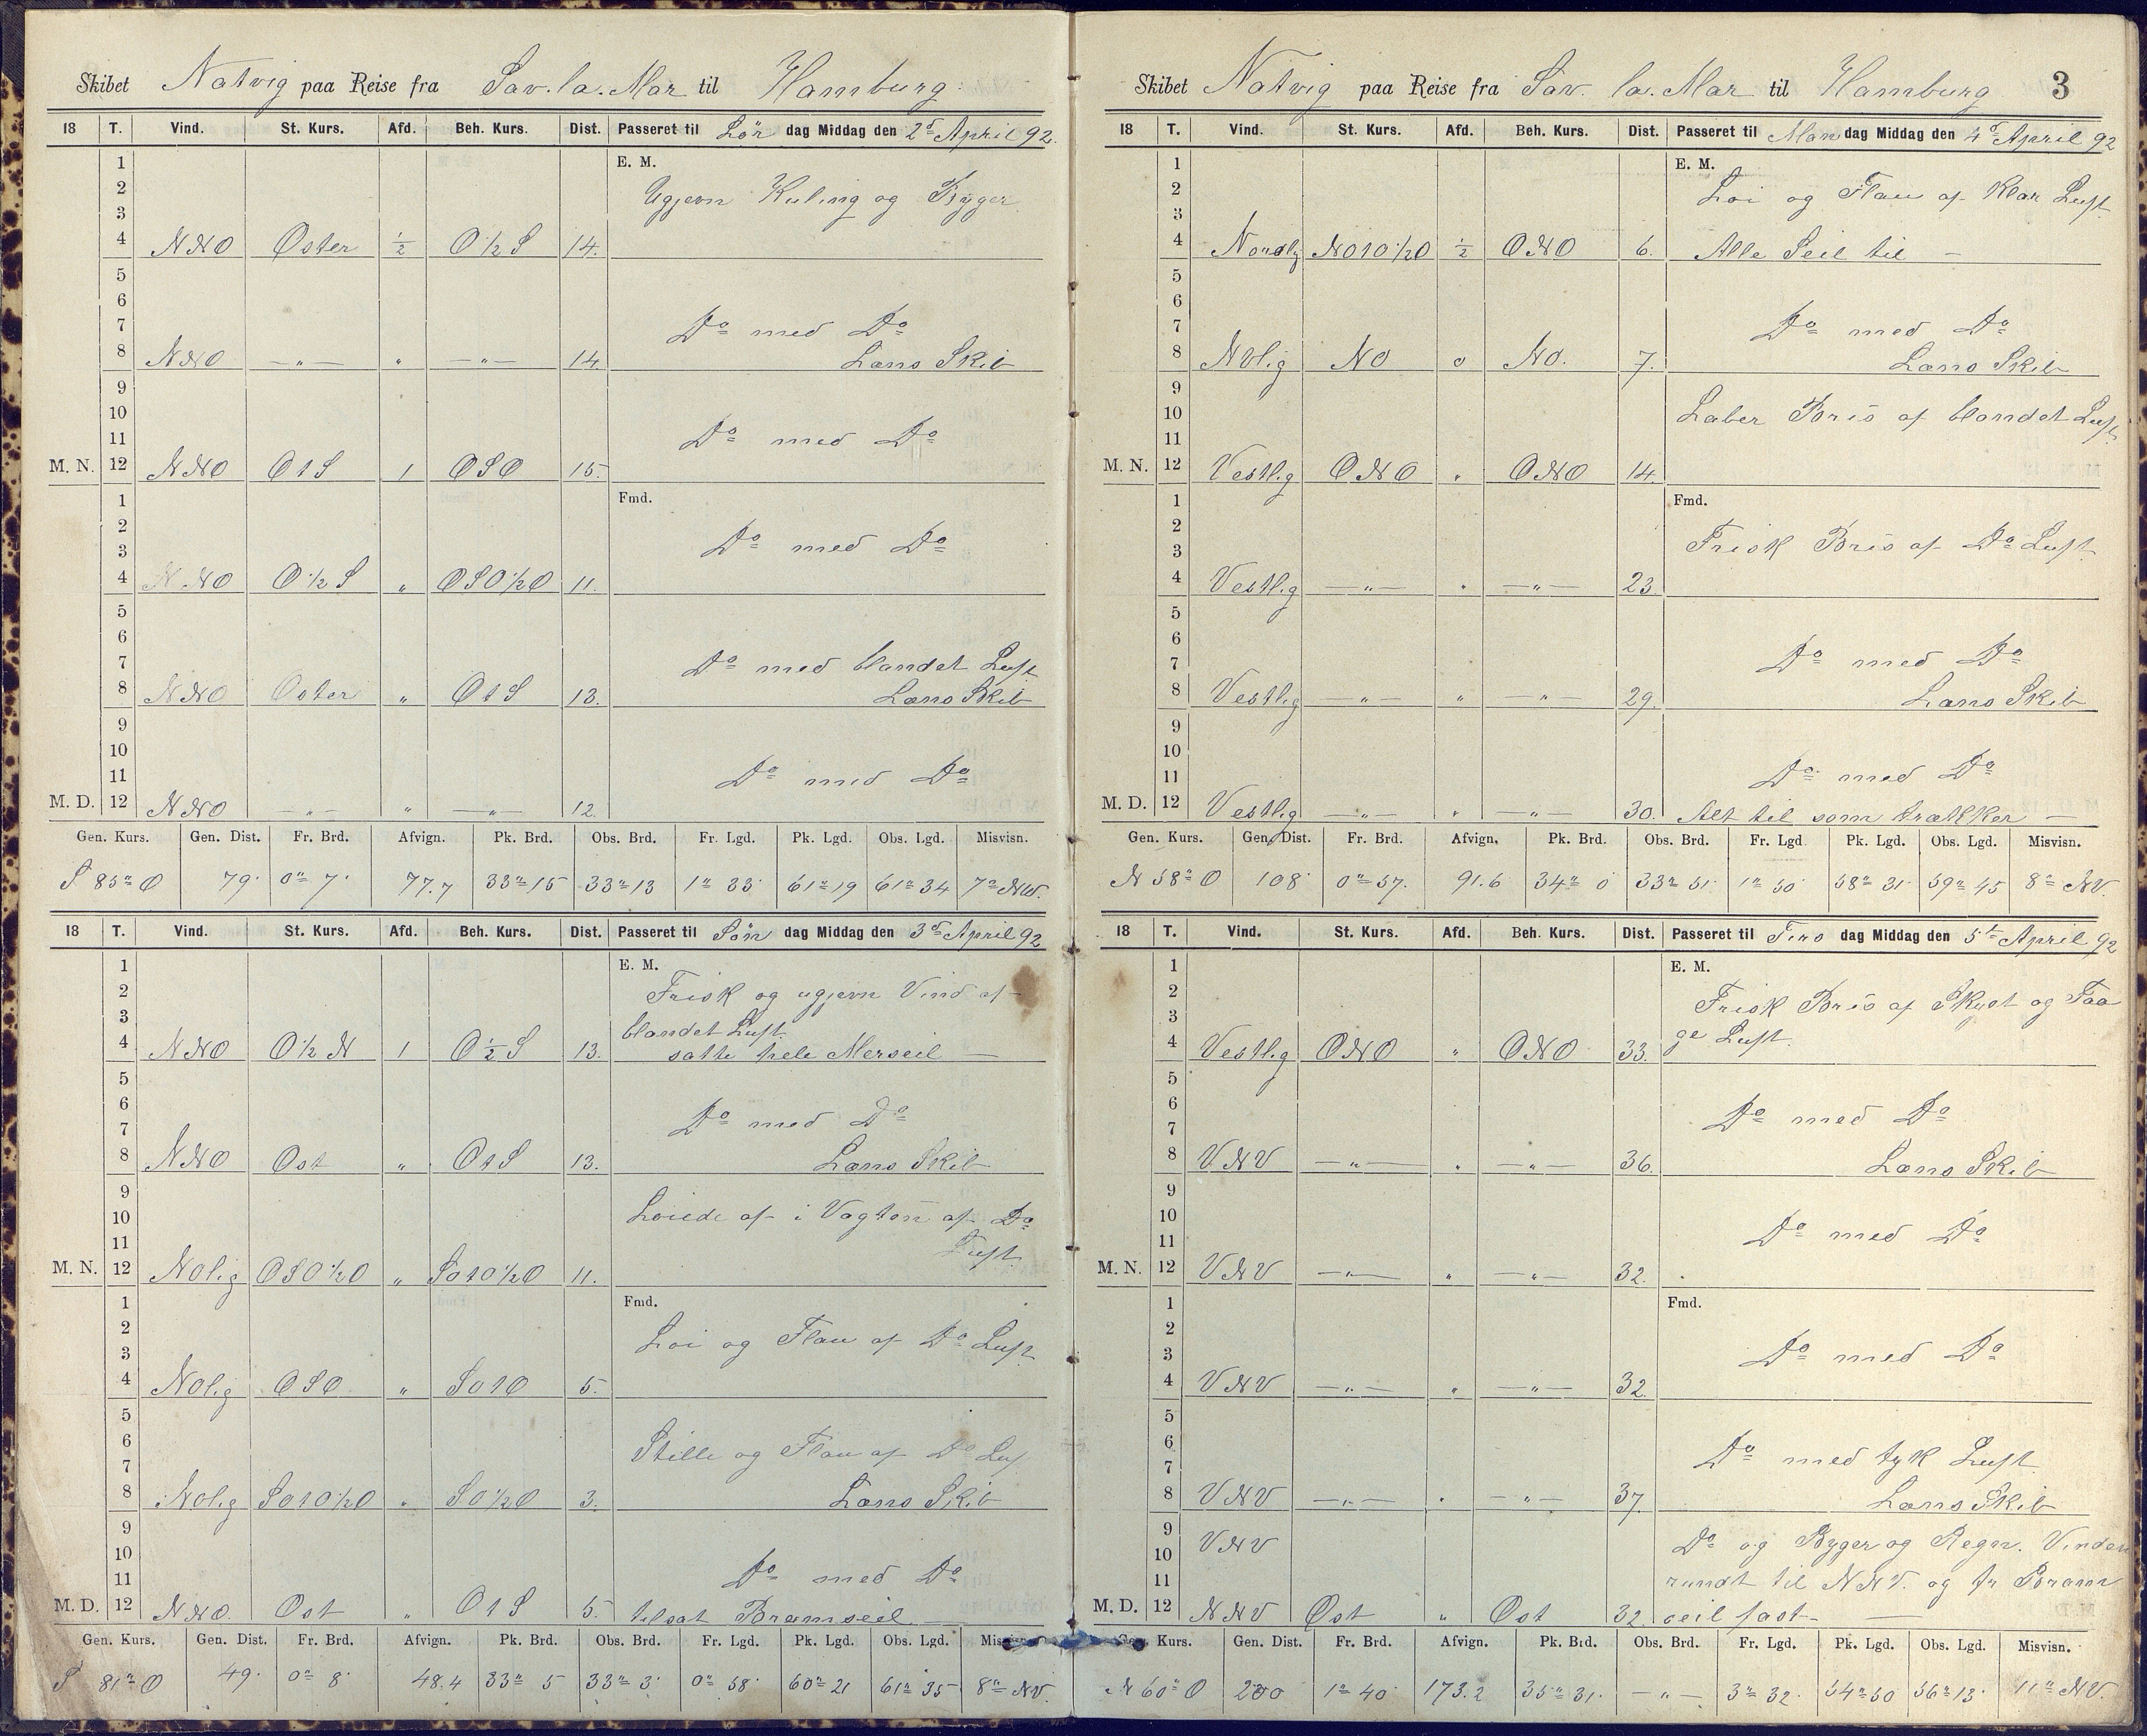 Skibet Natvig paa Reise fra Sav. la. Mar til Hamburg
18 T. Vind. St. Kurs. Afd. Beh. Kurs. Dist. Passeret til Lör dag Middag den 2d April 92.
1 E. M.
2 Ugjevn Kuling og Byger
3
4 NNO Öster ½ O ½ S 14.
5
6
7 Do med Do
8 NNO —„— „ —„— 14. Læns Skib
9
10
11 Do med Do
M. N. 12 NNO O t S 1 OSO 15.
1 Fmd.
2
3 Do med Do
4 NNO O ½ S „ OSO ½ O 11.
5
6
7 Do med blandet Luft
8 NNO Oster „ O t S 13. Læns Skib
9
10
11 Do med Do
M. D. 12 NNO —„— „ —„— 12.
Gen. Kurs. Gen. Dist. Fr. Brd. Afvign. Pk. Brd. Obs. Brd. Fr. Lgd. Pk. Lgd. Obs. Lgd. Misvisn.
S 85° O 79' 0° 7' 77.7 33° 15 33° 13 1° 33' 61° 19 61° 34 7° NW.
18 T. Vind. St. Kurs. Afd. Beh. Kurs. Dist. Passeret til Sön dag Middag den 3d April 92
1 E. M.
2 Frisk og ugjevn Vind af
3 blandet Luft.
4 NNO O ½ N 1 O ½ S 13. satte hele Merseil —
5
6
7 Do med Do
8 NNO Ost „ O t S 13. Læns Skib
9
10 Löiede af i Vagten af Do
11 Luft.
M. N. 12 NOlig OSO ½ O „ SO t O ½ O 11.
1 Fmd.
2 Löi og Flau af Do Luft
3
4 NOlig OSO „ SO t O 5.
5
6 Stille og Flau af Do Luf
7
8 NOlig SO t O ½ O „ SO ½ O 3. Læns Skib
9
10
11 Do med Do
M. D. 12 NNO. Ost „ O t S 5. tilsat Bramseil —
Gen. Kurs. Gen. Dist. Fr. Brd. Afvign. Pk. Brd. Obs. Brd. Fr. Lgd. Pk. Lgd. Obs. Lgd. Misvisn.
S 81° O 49' 0° 8' 48.4 33° 5 33° 3' 0° 58' 60° 21 61° 35 8° NV.
Skibet Natvig paa Reise fra Sav. la. Mar til Hamburg 3
18 T. Vind. St. Kurs. Afd. Beh. Kurs. Dist. Passeret til Man dag Middag den 4d April 92
1 E. M.
2 Löi og Flau af Klar Luft
3
4 Nordlg NO t O ½ O ½ ONO 6. Alle Seil til —
5
6
7 Do med Do
8 NVlig NO 0 NO. 7. Læns Skib
9
10 Laber Bris af blandet Luft
11
M. N. 12 Vestlig ONO „ ONO 14.
1 Fmd.
2
3 Frisk Bris af Do Luft
4 Vestlig —„— „ —„— 23.
5
6
7 Do med Do
8 Vestlig —„— „ —„— 29. Læns Skib
9
10
11 Do med Do
M. D. 12 Vestlig —„— „ —„— 30. Alt til som trækker —
Gen. Kurs. Gen. Dist. Fr. Brd. Afvign. Pk. Brd. Obs. Brd. Fr. Lgd. Pk. Lgd. Obs. Lgd. Misvisn.
N 58° O 108' 0° 57. 91.6 34° 0 33° 51' 1° 50' 58° 31' 59° 45 8° NV.
18 T. Vind. St. Kurs. Afd. Beh. Kurs. Dist. Passeret til Tirs dag Middag den 5t April 92
1 E. M.
2 Frisk Bris af Skyet og Taa
3 ge Luft.
4 Vestlig ONO „ ONO 33.
5
6
7 Do med Do
8 VNV —„— „ —„— 36. Læns Skib
9
10
11 Do med Do
M. N. 12 VNV —„— „ —„— 32.
1 Fmd.
2
3 Do med Do
4 VNV —„— „ —„— 32.
5
6
7 Do med tyk Luft
8 VNV —„— „ —„— 37. Læns Skib
9 VNV
10 Do og Byger og Regn. Vinden
11 rundt til NNV. og fr Bram
M. D. 12 NNV Øst „ Ost 32. seil fast — —
Kurs. Gen. Dist. Fr. Brd. Afvign. Pk. Brd. Obs. Brd. Fr. Lgd. Pk. Lgd. Obs. Lgd. Misvisn.
N 60° O 200 1° 40' 173.2 35° 31' —„— 3° 32' 54° 50 56° 13' 11° NV.